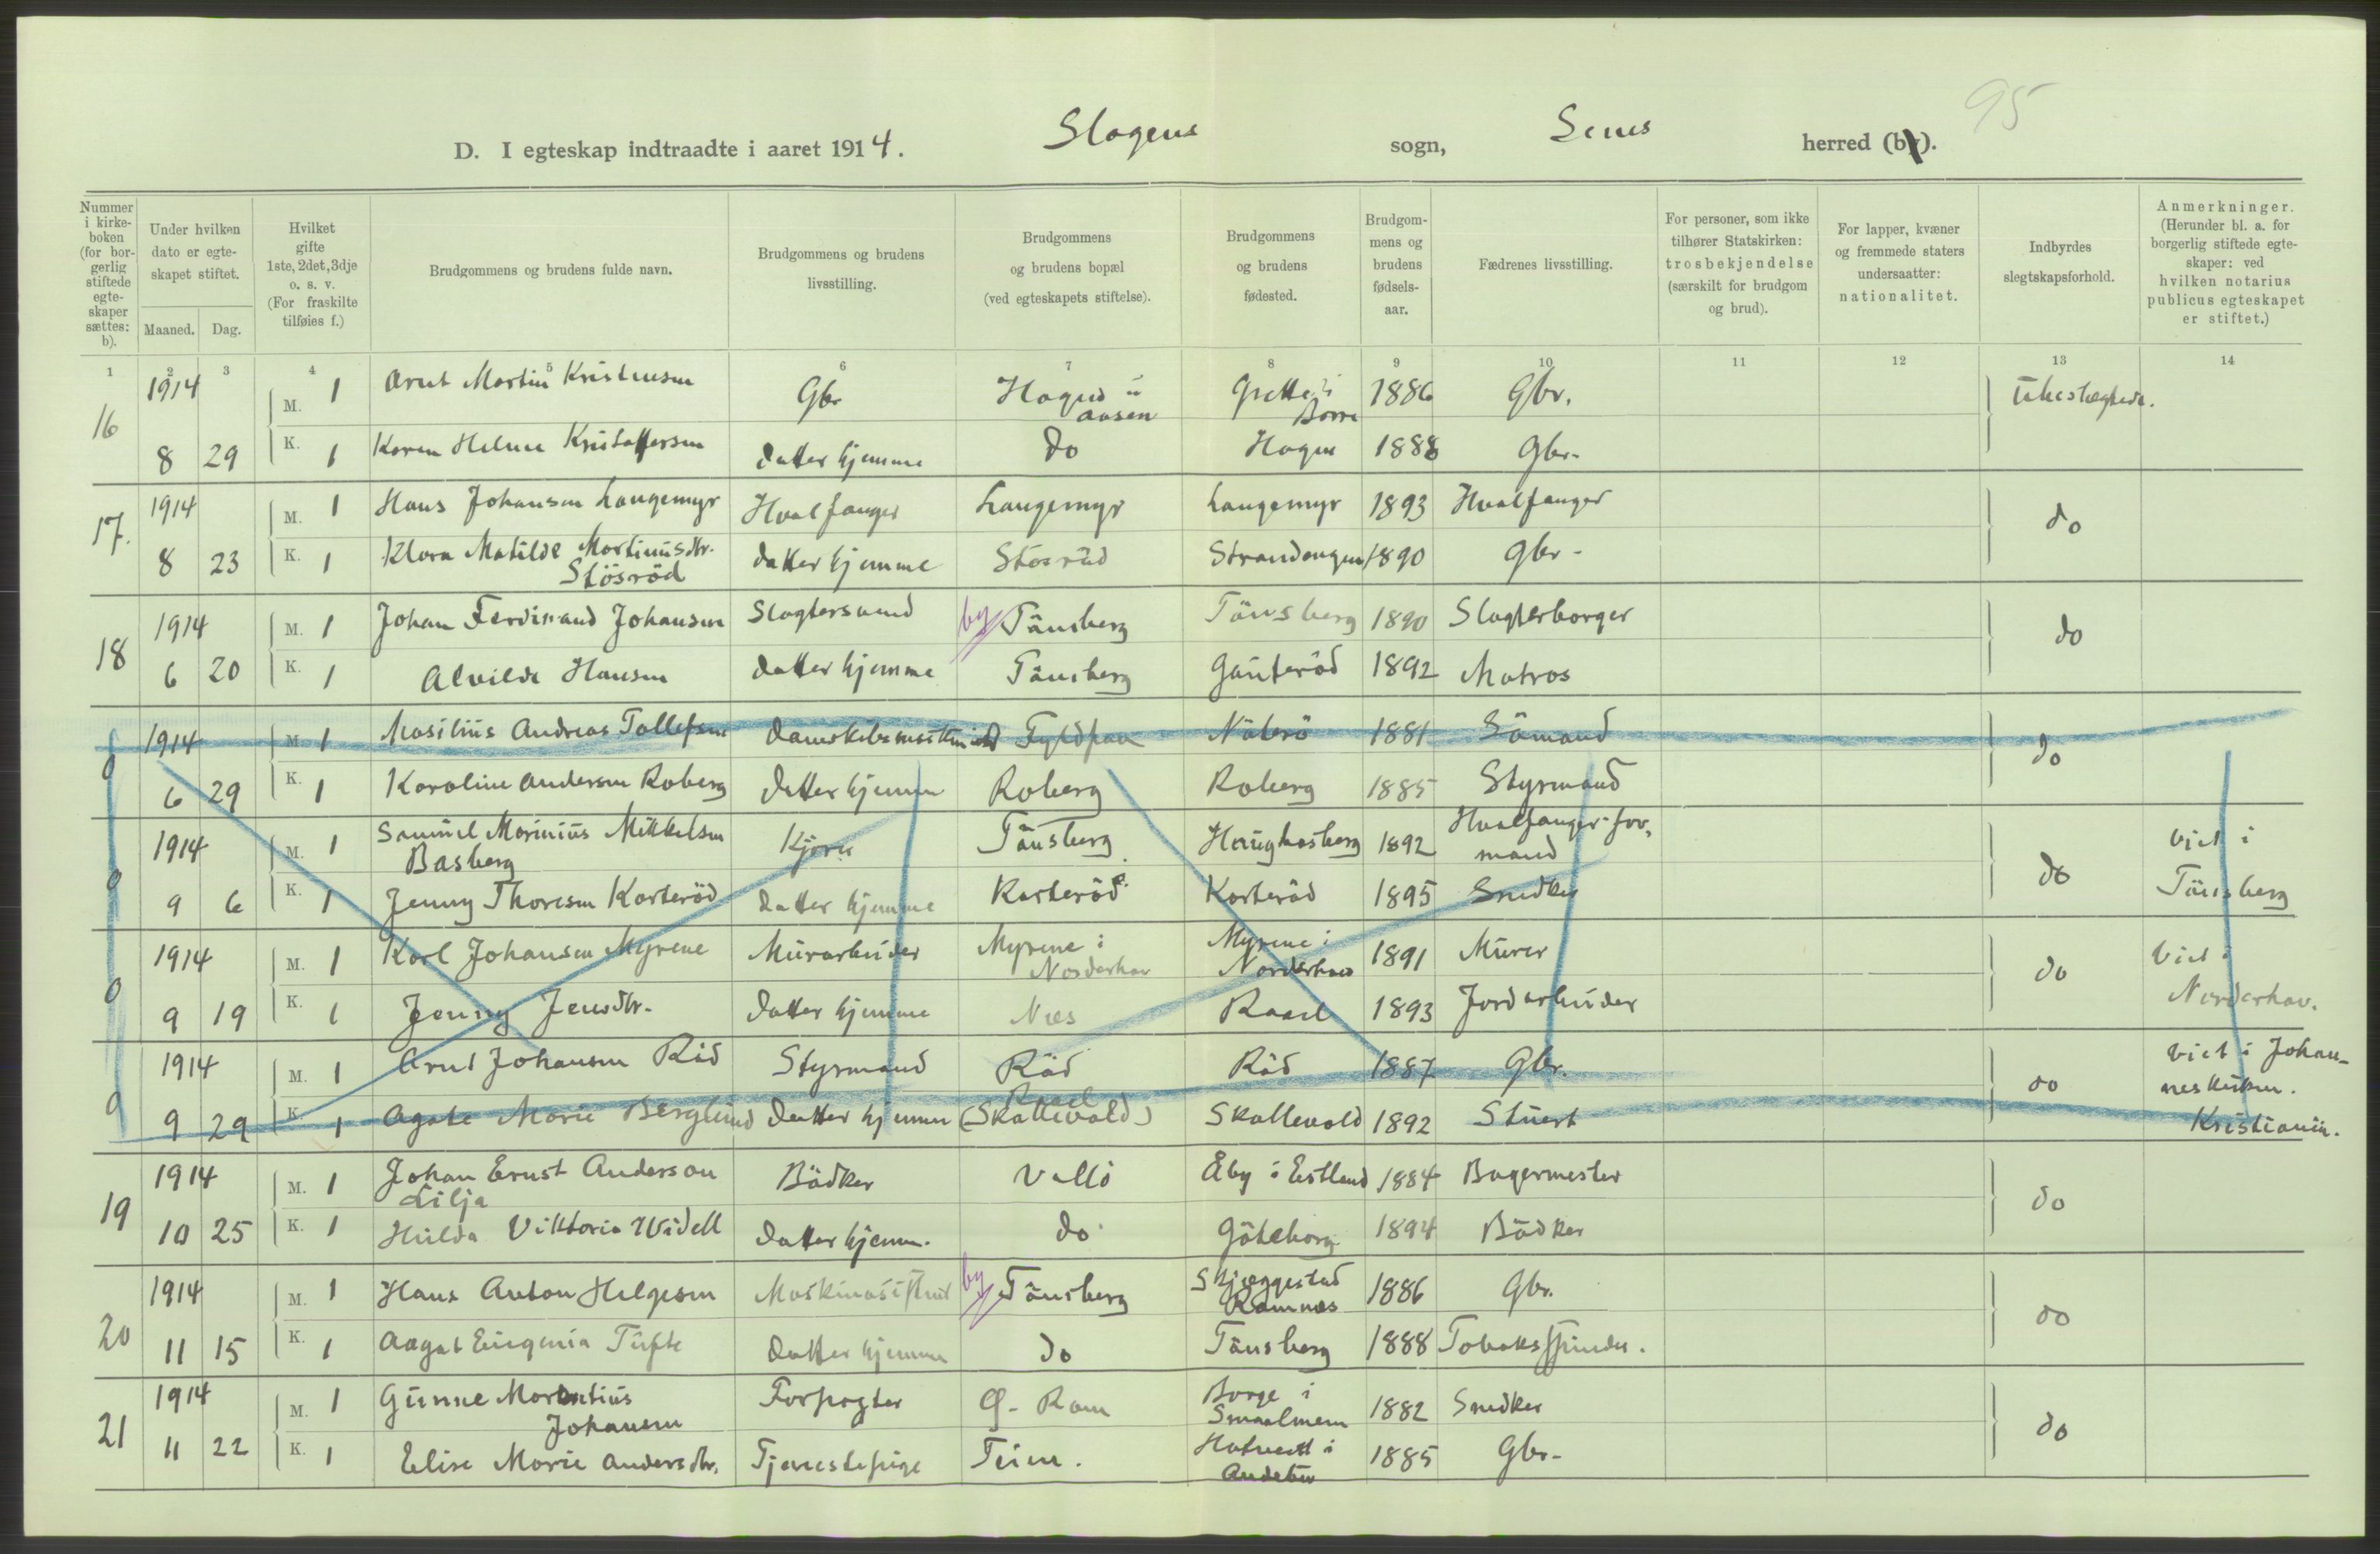 95
D. I egteskap indtraadte i aaret 1914. Slagens sogn, Sems herred (by).
Nummer i kirkeboken (for borgerlig stiftede egteskaper sættes: b).
Under hvilken dato er egteskapet stiftet.
Maaned. Dag.
Hvilket gifte 1ste, 2det, 3dje o. s. v. (For fraskilte tilføies f.)
Brudgommens og brudens fulde navn.
Brudgommens og brudens livsstilling.
Brudgommens og brudens bopæl (ved egteskapets stiftelse).
Brudgommens og brudens fødested.
Brudgommens og brudens fødselsaar.
Fædrenes livsstilling.
For personer, som ikke tilhører Statskirken: trosbekjendelse (særskilt for brudgom og brud).
For lapper, kvæner og fremmede staters undersaatter: nationalitet.
Indbyrdes slegtskapsforhold.
Anmerkninger. (Herunder bl. a. for borgerlig stiftede egteskaper: ved hvilken notarius publicus egteskapet er stiftet.)
1 2 3 4 5 6 7 8 9 10 11 12 13 14
16 1914 M. 1 Arnt Martin Kristensen Gbr Hagen i Aasen Grette i Borre 1886 Gbr.
8 29 K. 1 Karen Helene Kristoffersen datter hjemme do Hagen 1888 Gbr.
17. 1914 M. 1 Hans Johansen Langemyr Hvalfanger Langemyr Langemyr 1893 Hvalfanger do
8 23 K. 1 Klara Matilde Martinusdtr. Stösröd datter hjemme Stösröd Strandengen 1890 Gbr.
18 1914 M. 1 Johan Ferdinand Johansen Slagtersvend by Tönsberg Tönsberg 1890 Slagterborger do
6 20 K. 1 Alvilde Hansen datter hjemme Tönsberg Gunteröd 1892 Matros
0 1914 M. 1 Masilius Andreas Tollefsen Fyldpaa Nöterö 1881 Sömand do
6 29 K. 1 Karoline Andersen Roberg datter hjemme Roberg Roberg 1885 Styrmand
0 1914 M. 1 Samuel Marinius Mikkelsen Basberg Tönsberg Haughasberg 1892 Hvalfanger-formand do viet i
9 6 K. 1 Jenny Thoresen Korteröd datter hjemme Korteröd Korteröd 1895 Snedker Tönsberg
0 1914 M. 1 Karl Johansen Myrene Murarbeider Myrene i Norderhov Myrene i Norderhov 1891 Murer do viet i
9 19 K. 1 Jenny Jensdtr. datter hjemme Næs Rael 1893 Jordarbeider Norderhov.
0 1914 M. 1 Arnt Johansen Röd Styrmand Röd Röd 1887 Gbr. do viet i Johanneskirken.
9 29 K. 1 Agate Marie Berglund datter hjemme Rael (Skallevold) Skallevold 1892 Stuert Kristiania.
19 1914 M. 1 Johan Ernst Anderson Lilja Bödker Vallö Åby i Estland 1884 Bagermester do
10 25 K. 1 Hulda Viktoria Widell datter hjemm. do Göteborg 1894 Bödker
20 1914 M. 1 Hans Anton Helgesen Maskinasistent by Tönsberg Skjæggestad Ramnæs 1886 Gbr. do
11 15 K. 1 Aagot Eugenia Tufte datter hjemme do Tönsberg 1888 Tobaksspinder.
21 1914 M. 1 Gunne Johansen Forpagter Ø. Ram Borge i Smaalenene 1882 Snedker do
11 22 K. 1 Elise Marie Andersdtr. Tjenestepige Teien. Andebu 1885 Gbr.